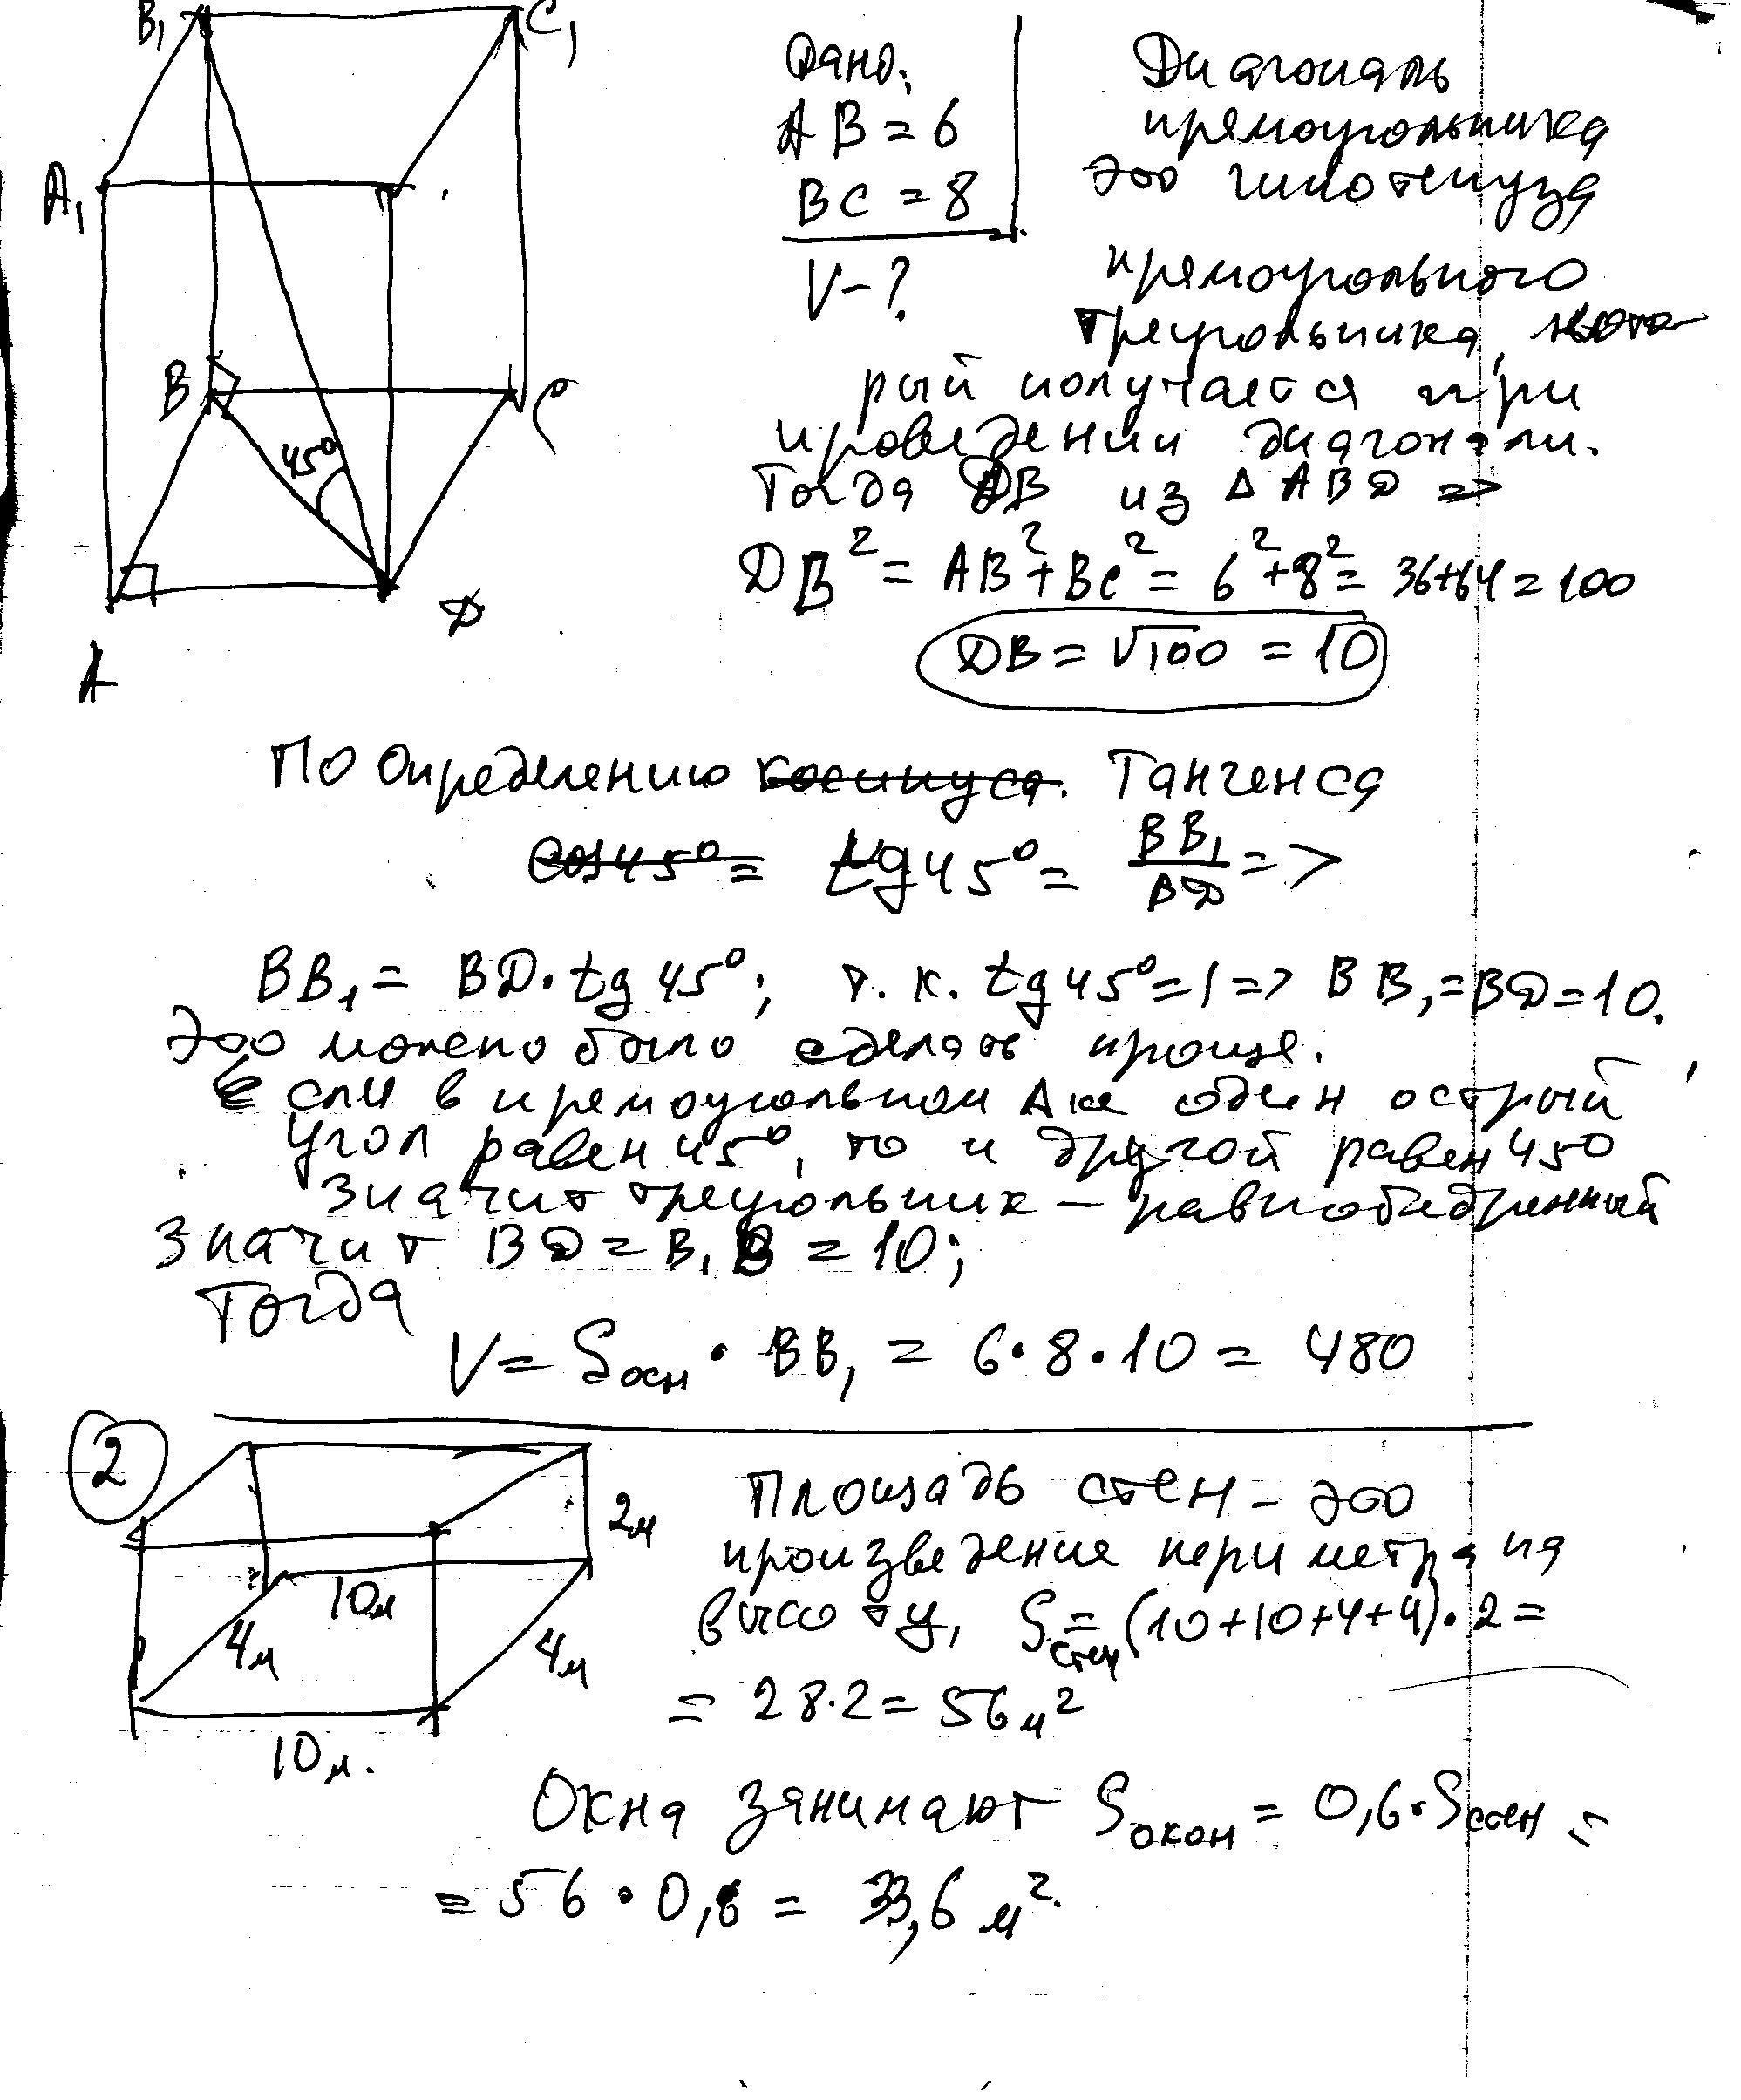 B₁
C₁
A₁
B
C
45°
A
D
Дано:
AB = 6
BC = 8
V - ?
Диагональ
прямоугольника
это гипотенуза
прямоугольного
треугольника, кото-
рый получается при
проведении диагонали.
Тогда DB из Δ ABD =>
DB² = AB² + BC² = 6² + 8² = 36+64 = 100
DB = √100 = 10
По определению косинуса. Тангенса
cos 45° = tg 45° = BB₁/BD =>
BB₁ = BD · tg 45°; т. к. tg 45° = 1 => BB₁ = BD = 10.
Это можно было сделать проще.
Если в прямоугольном Δке один острый
угол равен 45°, то и другой равен 45°
значит треугольник – равнобедренный
значит BD = B₁B = 10;
Тогда
V = Sосн · BB₁ = 6 · 8 · 10 = 480
2
2м
10м
4м
4м
10м.
Площадь стен – это
произведение периметра на
высоту, Sстен = (10+10+4+4) · 2 =
= 28 · 2 = 56 м²
Окна занимают Sокон = 0,6 · Sстен =
= 56 · 0,6 = 33,6 м².